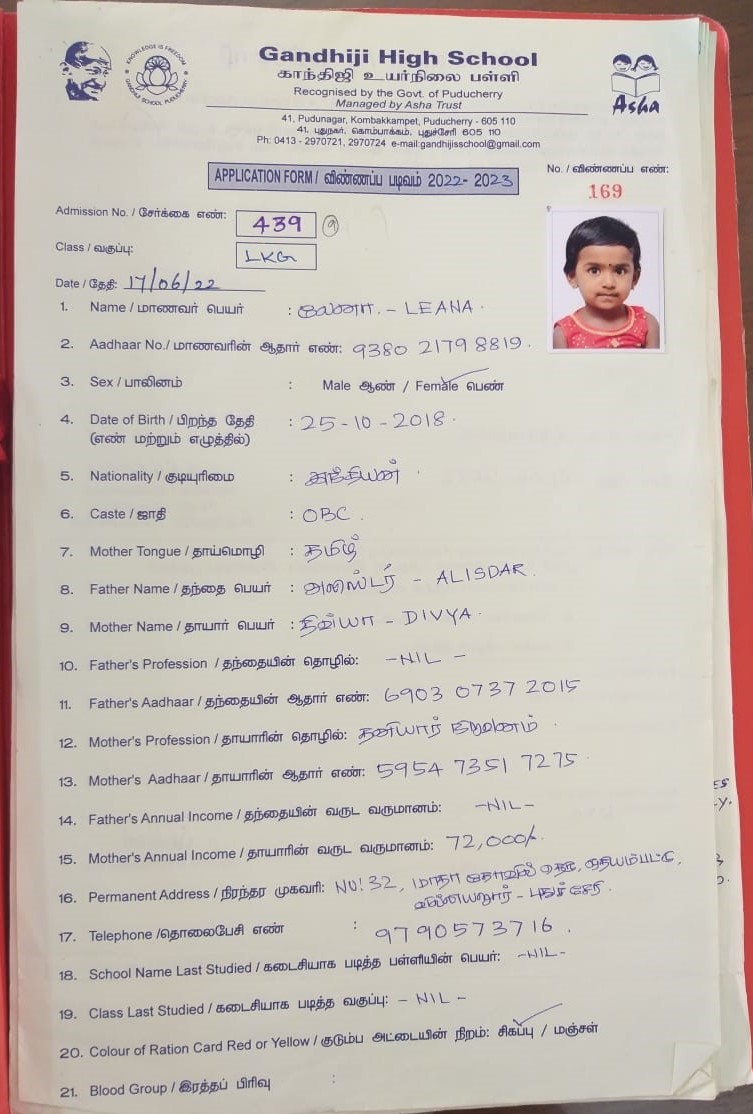 KNOWLEDGE IS FREEDOM
GANDHIJI SCHOOL PUDUCHERRY
Gandhiji High School
காந்திஜி உயர்நிலை பள்ளி
Recognised by the Govt. of Puducherry
Managed by Asha Trust
Asha
41, Pudunagar, Kombakkampet, Puducherry - 605 110
41, புதுநகர், கொம்பாக்கம், புதுச்சேரி 605 110
Ph: 0413 - 2970721, 2970724 e-mail:gandhijisschool@gmail.com
APPLICATION FORM / விண்ணப்ப படிவம் 2022- 2023
No. / விண்ணப்ப எண்:
169
Admission No. / சேர்க்கை எண்: 439 9
Class / வகுப்பு: LKG
Date / தேதி: 17/06/22
1. Name / மாணவர் பெயர் : லேனா. - LEANA.
2. Aadhaar No./ மாணவரின் ஆதார் எண்: 9380 2179 8819.
3. Sex / பாலினம் : Male ஆண் / Female பெண்
4. Date of Birth / பிறந்த தேதி : 25-10-2018.
(எண் மற்றும் எழுத்தில்)
5. Nationality / குடியுரிமை : இந்தியன்.
6. Caste / ஜாதி : OBC.
7. Mother Tongue / தாய்மொழி : தமிழ்
8. Father Name / தந்தை பெயர் : அலிஸ்டர் - ALISDAR.
9. Mother Name / தாயார் பெயர் : திவ்யா - DIVYA.
10. Father's Profession / தந்தையின் தொழில்: -NIL-
11. Father's Aadhaar / தந்தையின் ஆதார் எண்: 6903 0737 2015
12. Mother's Profession / தாயாரின் தொழில்: தனியார் நிறுவனம்.
13. Mother's Aadhaar / தாயாரின் ஆதார் எண்: 5954 7351 7275.
14. Father's Annual Income / தந்தையின் வருட வருமானம்: -NIL-
15. Mother's Annual Income / தாயாரின் வருட வருமானம்: 72,000/-
16. Permanent Address / நிரந்தர முகவரி: NO: 32, மாதா கோவில் தெரு,
வில்லியனூர் - புதுச்சேரி.
17. Telephone /தொலைபேசி எண் : 9790573716.
18. School Name Last Studied / கடைசியாக படித்த பள்ளியின் பெயர்: -NIL-
19. Class Last Studied / கடைசியாக படித்த வகுப்பு: -NIL-
20. Colour of Ration Card Red or Yellow / குடும்ப அட்டையின் நிறம்: சிகப்பு / மஞ்சள்
21. Blood Group / இரத்தப் பிரிவு :